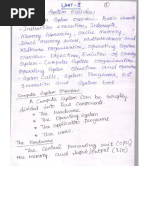 Unit-I
①
System Overview:
Computer System Overview - Basic Elements
- Instruction execution, Interrupts,
Memory hierarchy, Cache Memory,
Direct memory access, Multiprocessor and
Multicore organization, Operating System
Overview: Objectives, Evolution of
Computer System Organization,
Operating System Structure and
- System Calls, System Programs, OS
Generation and System boot.
Computer System Overview
A Computer System can be roughly
divided into four components
* The Hardware
* The Operating System
* The application programs
* The user.
The Hardware
The Central Processing unit (CPU)
the memory and input/output (I/O)